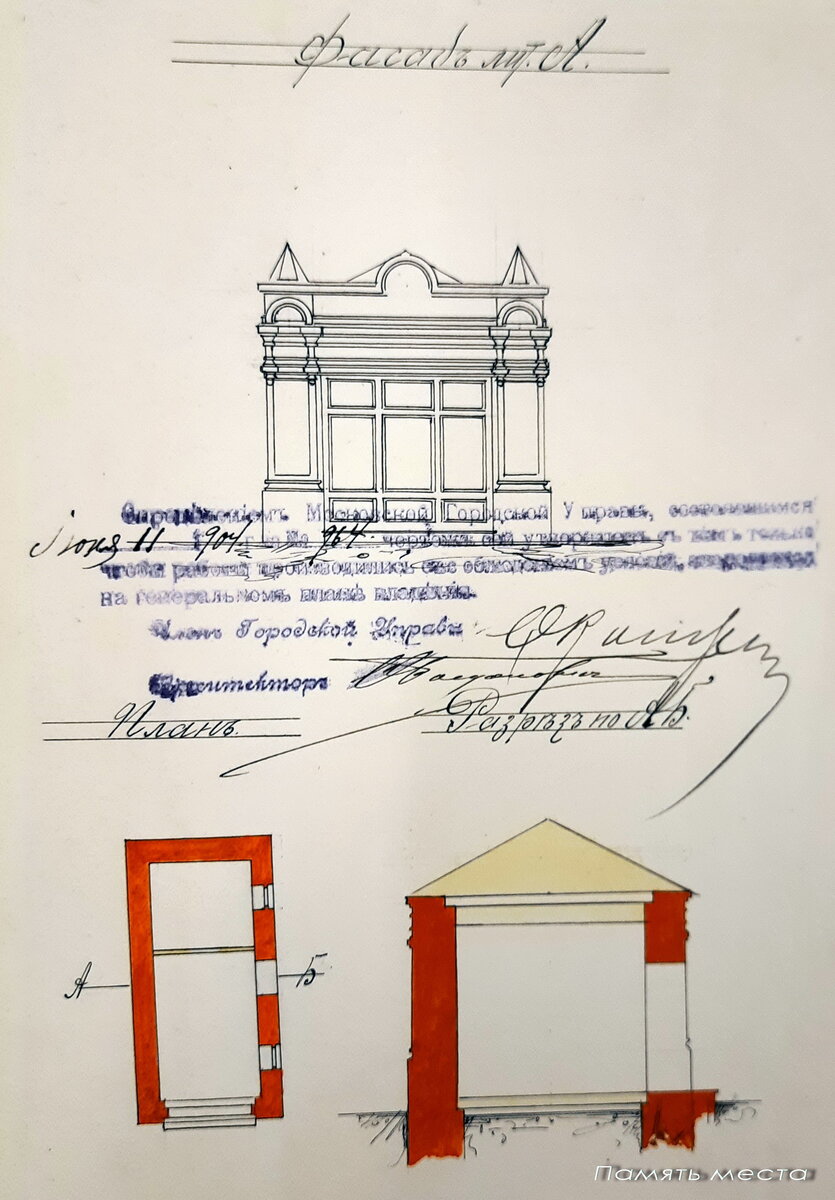 Фасадъ лит. А.
Опредѣленіемъ Московской Городской Управы, состоявшимся
Іюня 11 1904 г. за № 964 чертежъ сей утвержденъ съ тѣмъ только
чтобы работы производились
на генеральномъ планѣ владѣнія.
Членъ Городской Управы
Архитекторъ
Планъ.
Разрѣзъ по АБ.
А
Б
Память места